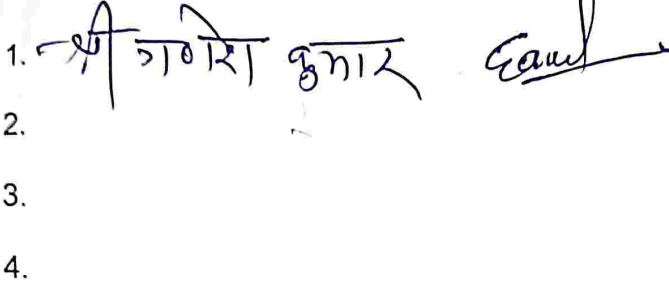 1. श्री गणेश कुमार
2.
3.
4.